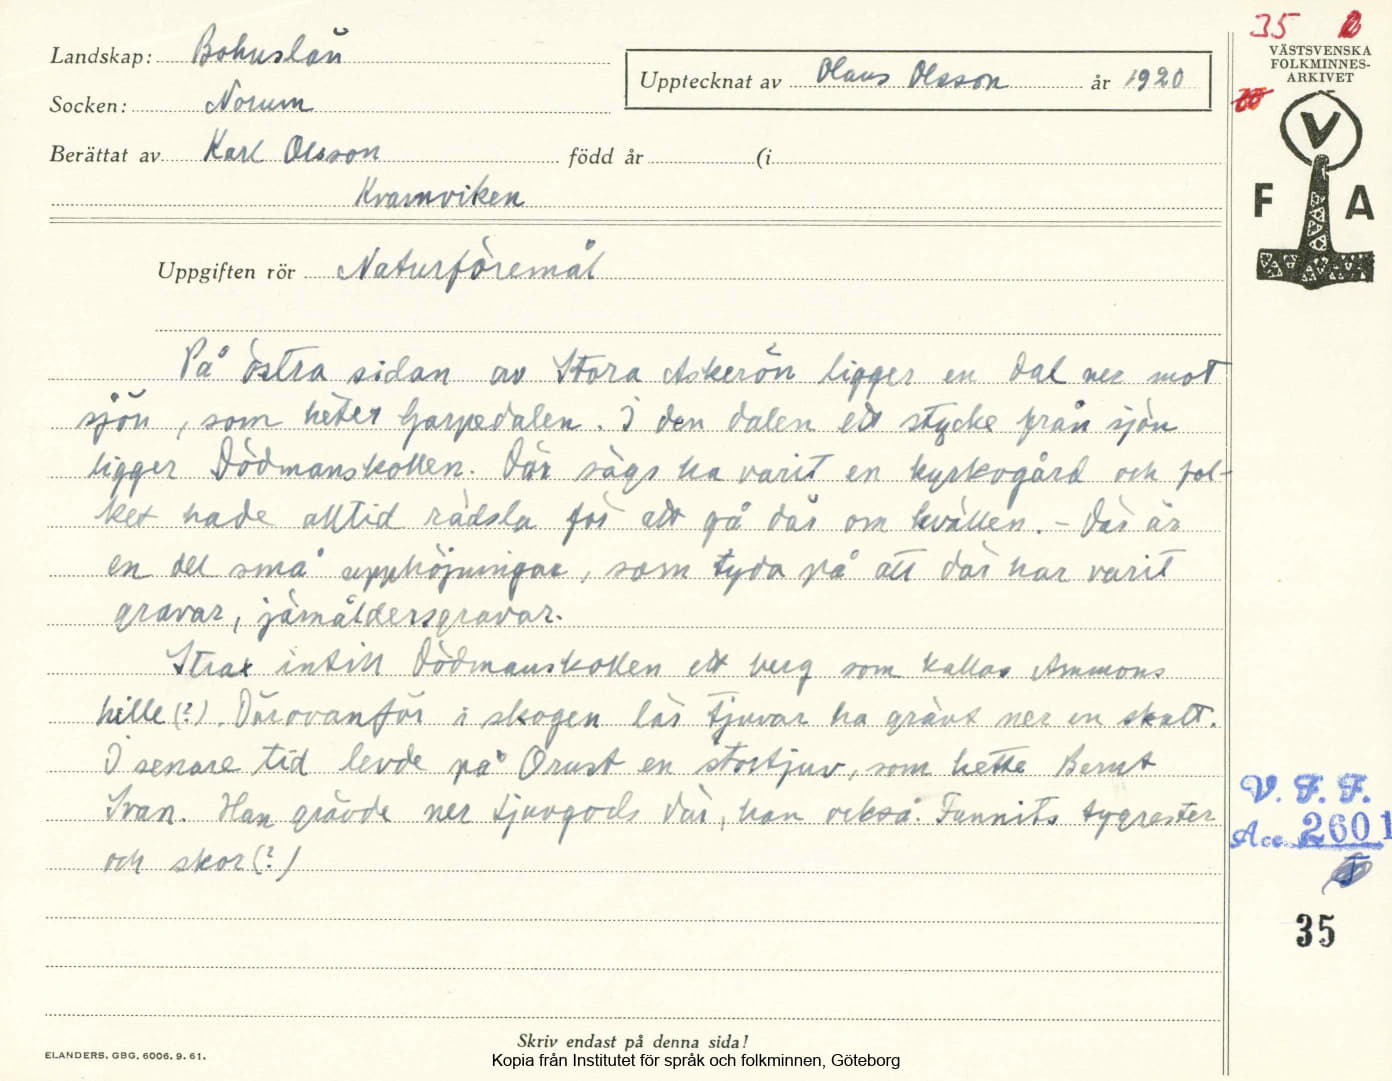 Landskap: Bohuslän
Socken: Norum
Berättat av Karl Olsson född år (i
Kvarnviken
Upptecknat av Olaus Olsson år 1920
Uppgiften rör Naturföremål
På östra sidan av Stora Askerön ligger en dal ner mot
sjön, som heter Garpedalen. I den dalen ett stycke från sjön
ligger Dödmanskollen. Där sägs ha varit en kyrkogård och fol-
ket hade alltid rädsla för att gå där om kvällen. - Där är
en del små upphöjningar, som tyda på att där har varit
gravar, järnåldersgravar.
Strax intill Dödmanskollen ett berg som kallas Ammons
hille (?). Därovanför i skogen lär tjuvar ha grävt ner en skatt.
I senare tid levde på Orust en stortjuv, som hette Bernt
Ivan. Han grävde ner tjuvgods där, han också. Funnits tygrester
och skor (?)
Skriv endast på denna sida!
ELANDERS. GBG. 6006. 9. 61.
Kopia från Institutet för språk och folkminnen, Göteborg
35
VÄSTSVENSKA
FOLKMINNES-
ARKIVET
V
F A
V. F. F.
Acc. 2601
35